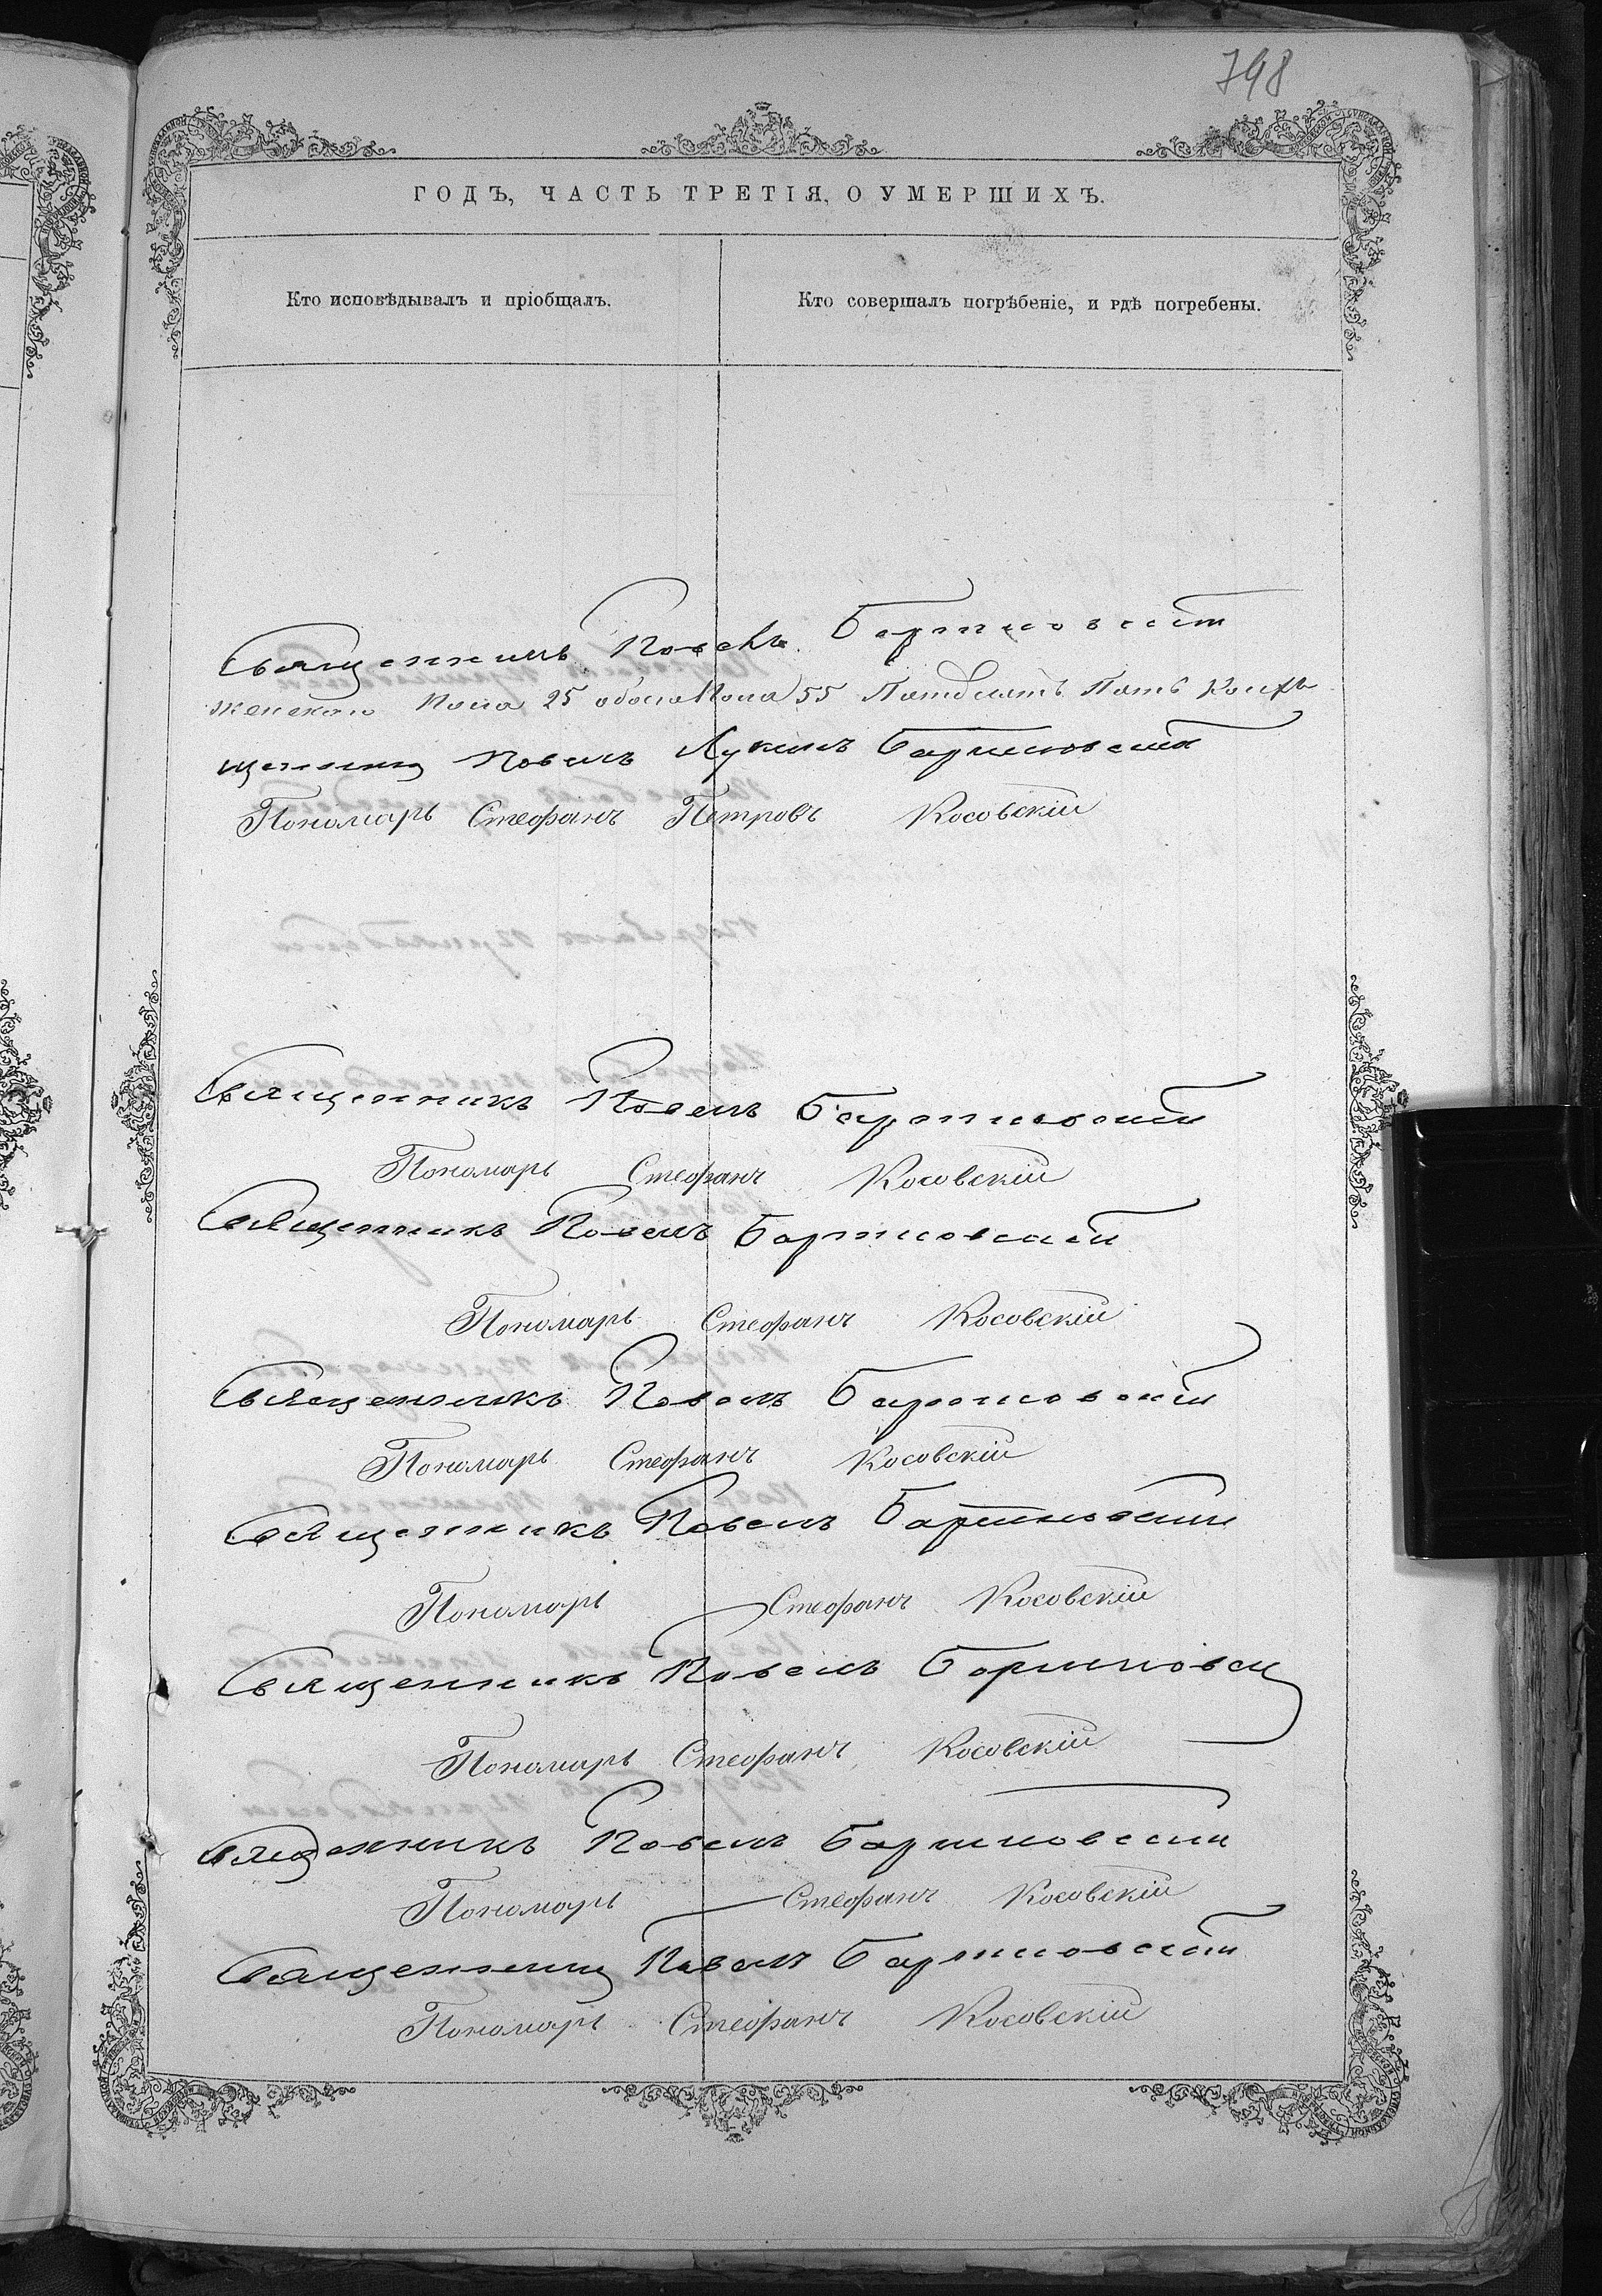 798
ГОДЪ, ЧАСТЬ ТРЕТІЯ, О УМЕРШИХЪ.
Кто исповѣдывалъ и пріобщалъ.
Кто совершалъ погрѣбеніе, и гдѣ погребены.
Священникъ Павелъ Бартновскій
женскаго пола 25 обоего пола 55 Патдесатъ Пать
Павелъ Лукинъ Бартновскій
Пономарь Стефанъ Петровъ Косовскій
Священникъ Павелъ Бартновскій
Пономарь Стефанъ Косовскій
Священникъ Павелъ Бартновскій
Пономарь Стефанъ Косовскій
Священникъ Павелъ Бартновскій
Пономарь Стефанъ Косовскій
Священникъ Павелъ Бартновскій
Пономарь Стефанъ Косовскій
Священникъ Павелъ Бартновскій
Пономарь Стефанъ Косовскій
Священникъ Павелъ Бартновскій
Пономарь Стефанъ Косовскій
Священникъ Павелъ Бартновскій
Пономарь Стефанъ Косовскій